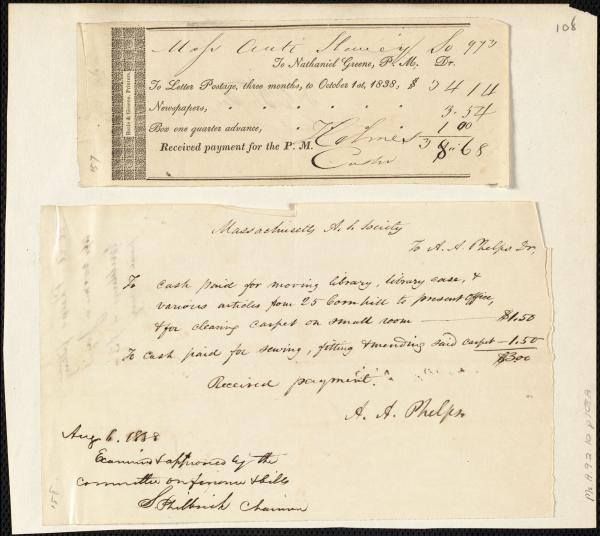 108
Mass Anti Slavery So 973
To Nathaniel Greene, P. M. Dr.
To Letter Postage, three months, to October 1st, 1838, $ 34 14
Newspapers, 3.54
Box one quarter advance, 1 00
Received payment for the P. M. Holmes 38.68
Beals & Greene, Printers.
Massachusetts A. S. Society
To A. A. Phelps Dr.
To cash paid for moving library, library case, &
various articles from 25 Cornhill to present office,
& for cleaning carpet on small room — $1.50
To cash paid for sewing, fitting & mending said carpet — 1.50
$3.00
Received payment.
A. A. Phelps
Aug 6. 1838
Examined & approved by the
Committee on finance & bills
S. Philbrick Chairman
Ms. A. 9.2 10 p 108A